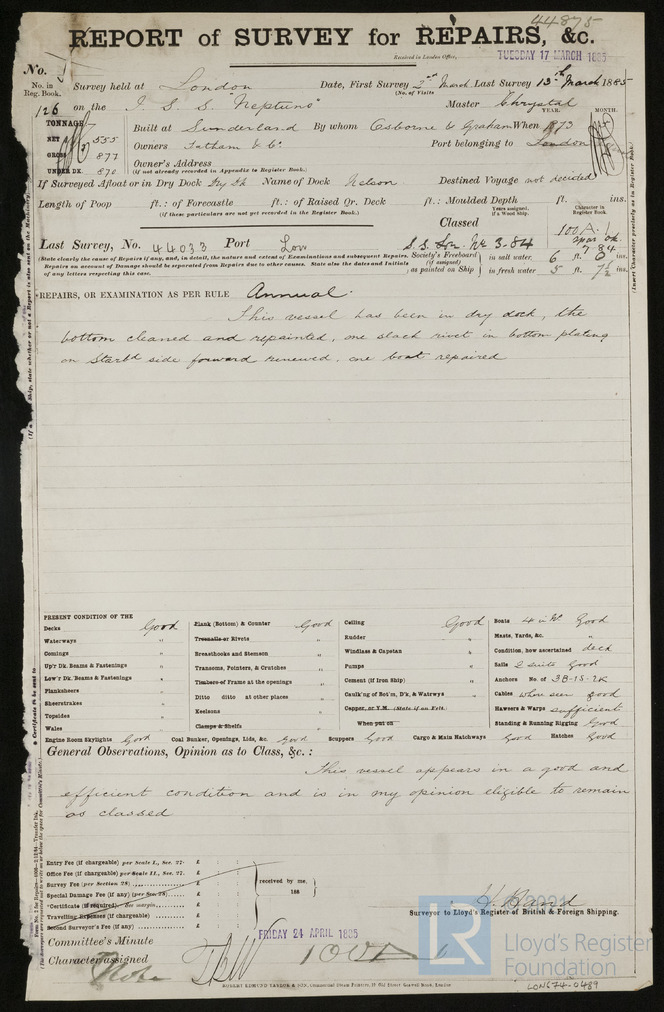 44875
REPORT of SURVEY for REPAIRS, &c.
Received in London Office, TUESDAY 17 MARCH 1885
No.
No. in Reg. Book. Survey held at London Date, First Survey 2nd March Last Survey 13th March 1885
(No. of Visits
126 on the I. S. S. "Neptune" Master Chrystal
TONNAGE Built at Sunderland By whom Osborne & Graham When 1873 YEAR. MONTH.
NET 555
GROSS 877 Owners Tatham & Co. Port belonging to London
UNDER DK. 870 Owner's Address
(If not already recorded in Appendix to Register Book.)
If Surveyed Afloat or in Dry Dock Dry Dk Name of Dock Nelson Destined Voyage not decided
Length of Poop ft.: of Forecastle ft.: of Raised Qr. Deck ft.: Moulded Depth ft. ins.
(If these particulars are not yet recorded in the Register Book.)
Classed Years assigned, if a Wood Ship. Character in Register Book. 100 A.1
7.84
Last Survey, No. 44033 Port Lon S.S. Lon. No. 3-84
State clearly the cause of Repairs if any, and, in detail, the nature and extent of Examinations and subsequent Repairs. Repairs on account of Damage should be separated from Repairs due to other causes. State also the dates and Initials of any letters respecting this case.
Society's Freeboard (if assigned) as painted on Ship in salt water, 6 ft. 0 ins.
in fresh water 5 ft. 7½ ins.
REPAIRS, OR EXAMINATION AS PER RULE Annual.
This vessel has been in dry dock, the
bottom cleaned and repainted, one slack rivet in bottom plating
on Starbd side forward renewed, one boat repaired
PRESENT CONDITION OF THE
Decks Good
Waterways "
Comings "
Up'r Dk. Beams & Fastenings "
Low'r Dk. Beams & Fastenings "
Planksheers "
Sheerstrakes "
Topsides "
Wales "
Engine Room Skylights Good
Plank (Bottom) & Counter Good
Treenails or Rivets "
Breasthooks and Stemson "
Transoms, Pointers, & Crutches "
Timbers of Frame at the openings "
Ditto ditto at other places "
Keelsons "
Clamps & Shelfs "
Coal Bunker, Openings, Lids, &c. Good
Ceiling Good
Rudder "
Windlass & Capstan "
Pumps "
Cement (if Iron Ship) "
Caulk'ng of Bot'm, D'k, & Watrwys "
Copper, or Y.M. (State if on Felt.)
When put on
Scuppers Good Cargo & Main Hatchways Good
Boats 4 in No. Good
Masts, Yards, &c. "
Condition, how ascertained deck
Sails 2 suits Good
Anchors No. of 3B-1S-2K
Cables where seen good
Hawsers & Warps sufficient
Standing & Running Rigging Good
Hatches Good
General Observations, Opinion as to Class, &c. :
This vessel appears in a good and
efficient condition and is in my opinion eligible to remain
as classed
Entry Fee (if chargeable) per Scale I., Sec. 27. £ : :
Office Fee (if chargeable) per Scale II., Sec. 27. £ : :
Survey Fee (per Section 28) £ : :
Special Damage Fee (if any) (per Sec. 28) £ : :
*Certificate (if required) See margin £ : :
Travelling Expenses (if chargeable) £ : :
Second Surveyor's Fee (if any) £ : :
received by me, 188
Surveyor to Lloyd's Register of British & Foreign Shipping.
Committee's Minute FRIDAY 24 APRIL 1885
Character assigned
Note
ROBERT EDMUND TAYLOR & SON, Commercial Steam Printers, 19 Old Street Goswell Road, London
Lloyd's Register
Foundation
LR
LON674-0489